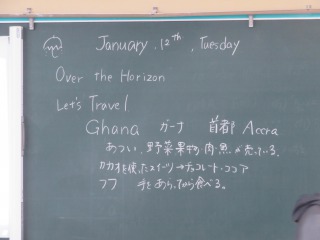 January . 12th , Tuesday
Over the Horizon
Let's Travel
Ghana ガーナ 首都 Accra
あつい、野菜果物・肉・魚が売っている。
カカオを使ったスイーツ→チョコレート・ココア
フフ 手をあらってから食べる。